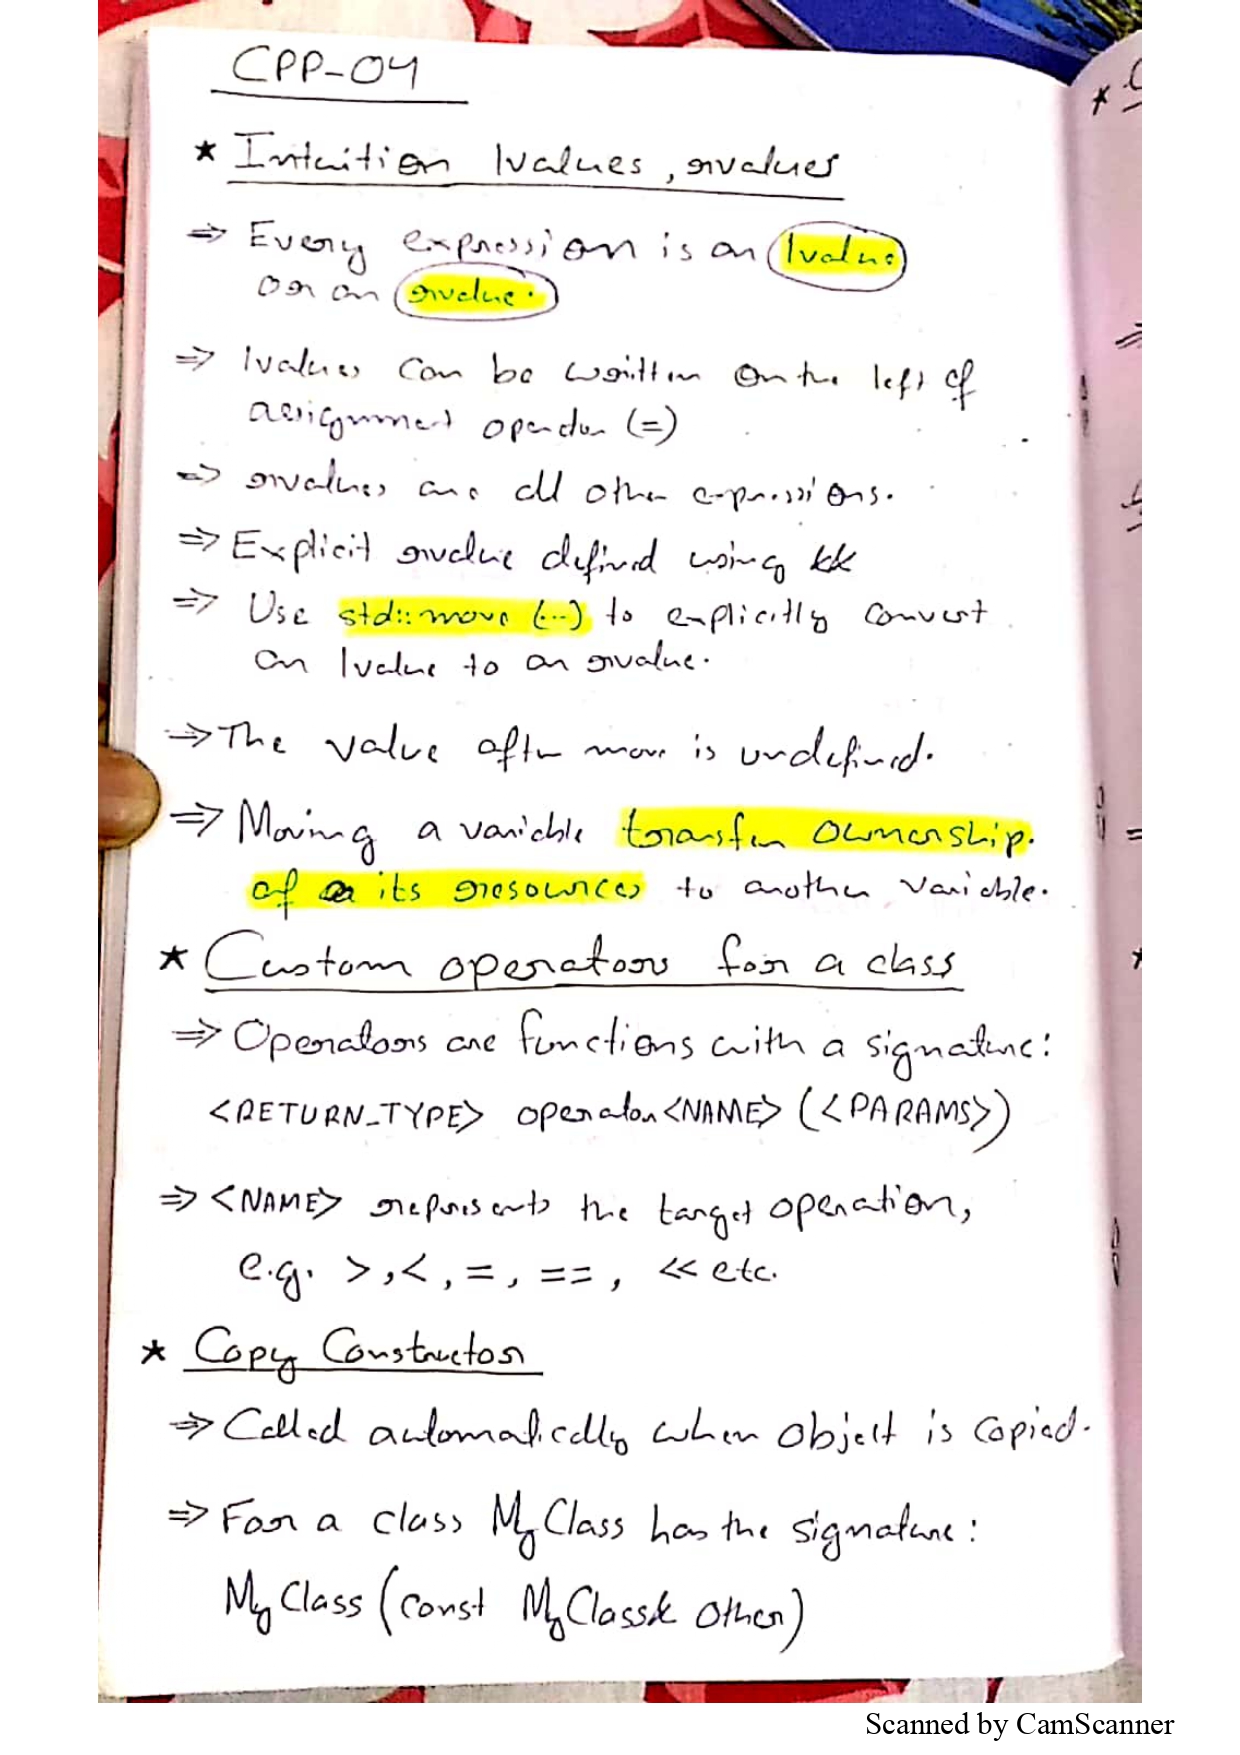 CPP-04
* Intuition lvalues, rvalues
⇒ Every expression is an lvalue
or an rvalue.
⇒ lvalues can be written on the left of
assignment operator (=)
⇒ rvalues are all other expressions.
⇒ Explicit rvalue defined using &&
⇒ Use std::move(...) to explicitly convert
an lvalue to an rvalue.
⇒ The value after move is undefined.
⇒ Moving a variable transfer ownership
of its resources to another variable.
* Custom operators for a class
⇒ Operators are functions with a signature:
<RETURN_TYPE> operator<NAME> (<PARAMS>)
⇒ <NAME> represents the target operation,
e.g. >, <, =, ==, << etc.
* Copy Constructor
⇒ Called automatically when object is copied.
⇒ For a class MyClass has the signature:
MyClass (const MyClass& other)
Scanned by CamScanner